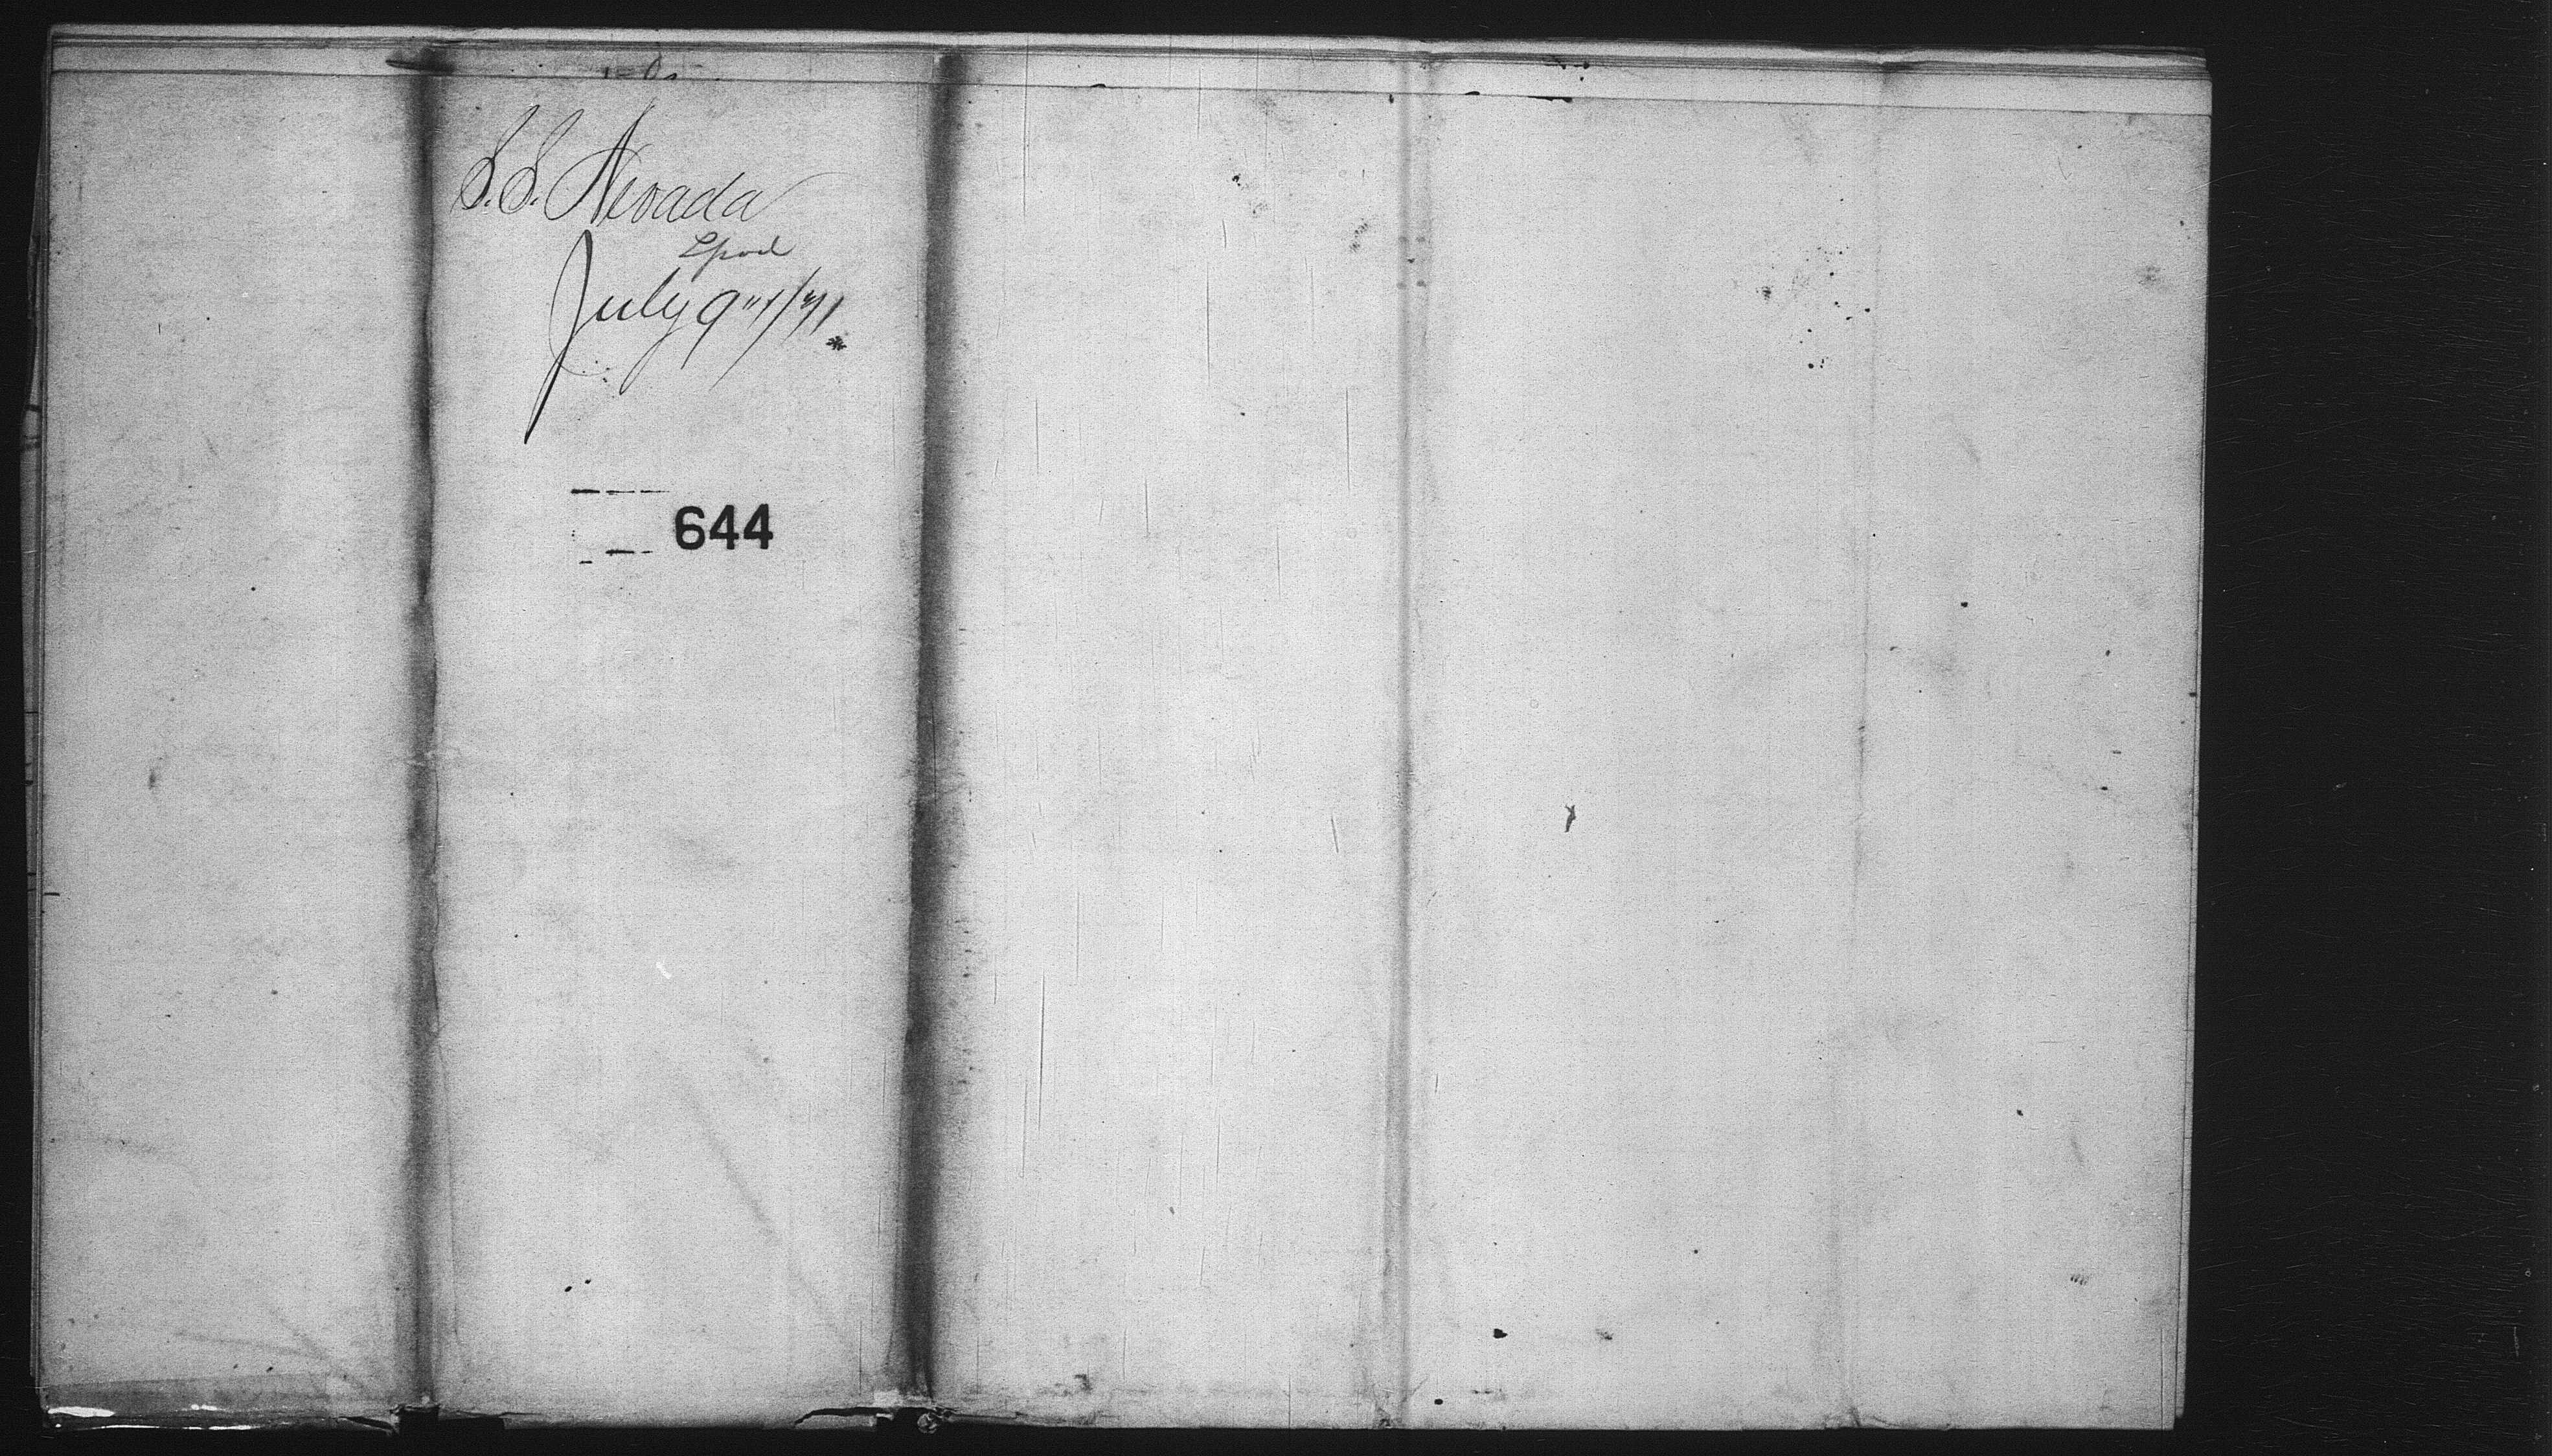 S.S. Nevada
Lpool
July 9"/71
644